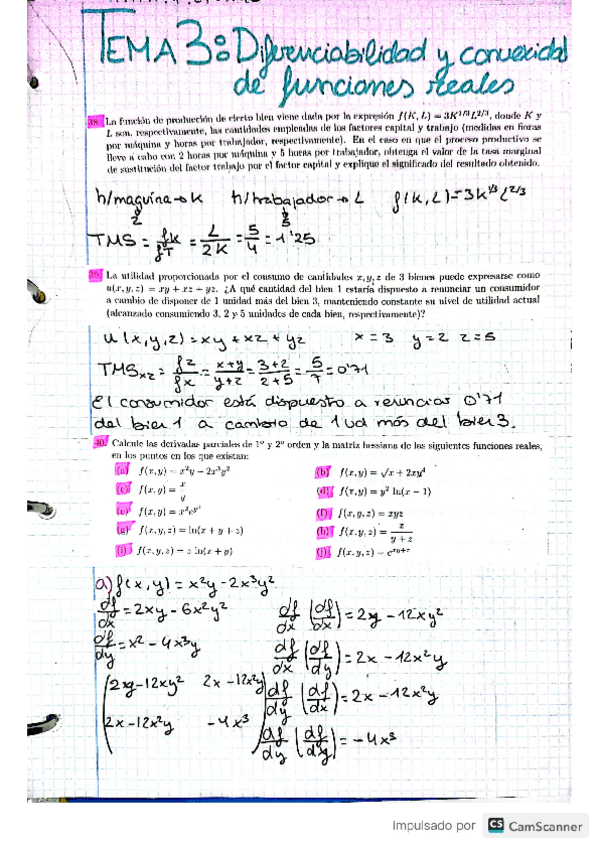 TEMA 3: Diferenciabilidad y convexidad
de funciones reales
38. La función de producción de cierto bien viene dada por la expresión f(K, L) = 3K^{1/3}L^{2/3}, donde K y
L son, respectivamente, las cantidades empleadas de los factores capital y trabajo (medidas en horas
por máquina y horas por trabajador, respectivamente). En el caso en que el proceso productivo se
lleve a cabo con 2 horas por máquina y 5 horas por trabajador, obtenga el valor de la tasa marginal
de sustitución del factor trabajo por el factor capital y explique el significado del resultado obtenido.
h/maquina → K h/trabajador → L f(K,L)=3K^{1/3}L^{2/3}
2 5
TMS = fK/fT = L/2K = 5/4 = 1'25
39. La utilidad proporcionada por el consumo de cantidades x, y, z de 3 bienes puede expresarse como
u(x, y, z) = xy + xz + yz. ¿A qué cantidad del bien 1 estaría dispuesto a renunciar un consumidor
a cambio de disponer de 1 unidad más del bien 3, manteniendo constante su nivel de utilidad actual
(alcanzado consumiendo 3, 2 y 5 unidades de cada bien, respectivamente)?
u(x,y,z) = xy + xz + yz x = 3 y = 2 z = 5
TMSxz = fz/fx = x+y/y+z = 3+2/2+5 = 5/7 = 0'71
El consumidor está dispuesto a renunciar 0'71
del bien 1 a cambio de 1 ud más del bien 3.
40. Calcule las derivadas parciales de 1º y 2º orden y la matriz hessiana de las siguientes funciones reales,
en los puntos en los que existan:
(a) f(x, y) = x²y − 2x³y² (b) f(x, y) = √x + 2xy⁴
(c) f(x, y) = x/y (d) f(x, y) = y² ln(x − 1)
(e) f(x, y) = x²e^{y²} (f) f(x, y, z) = xyz
(g) f(x, y, z) = ln(x + y + z) (h) f(x, y, z) = x/y + z
(i) f(x, y, z) = z ln(x + y) (j) f(x, y, z) = e^{xy+z}
a) f(x,y) = x²y - 2x³y²
df/dx = 2xy - 6x²y² df/dx (df/dx) = 2y - 12xy²
df/dy = x² - 4x³y df/dx (df/dy) = 2x - 12x²y
(2y-12xy² 2x-12x²y df/dy (df/dx) = 2x - 12x²y
2x-12x²y -4x³) df/dy (df/dy) = -4x³
Impulsado por CS CamScanner